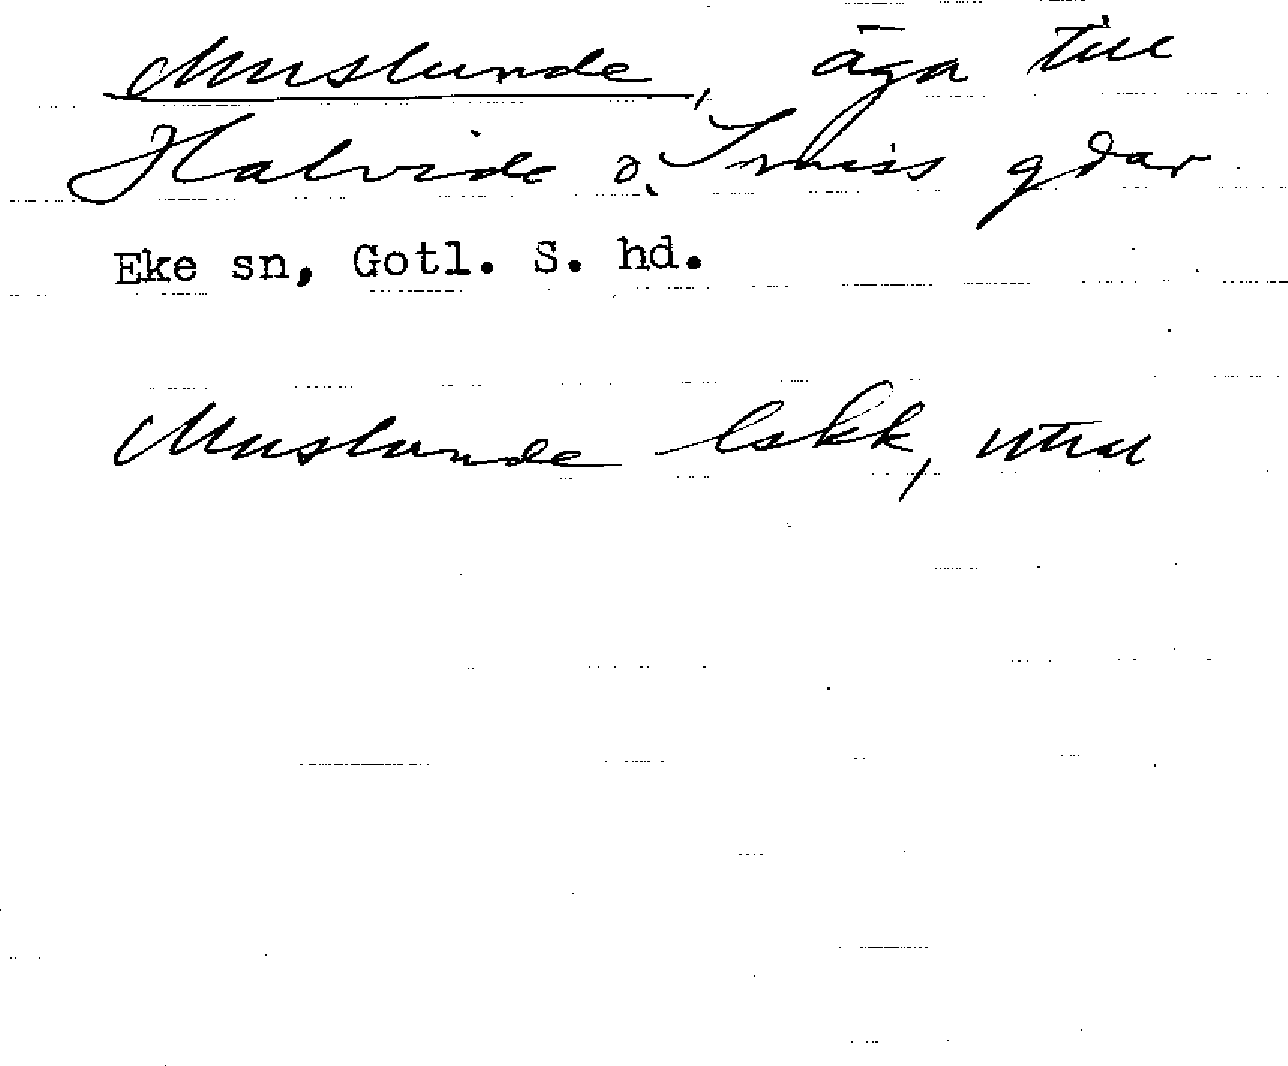 Muslunde, äga till
Halvide o. Smiss gdar
Eke sn, Gotl. S. hd.
Muslunde